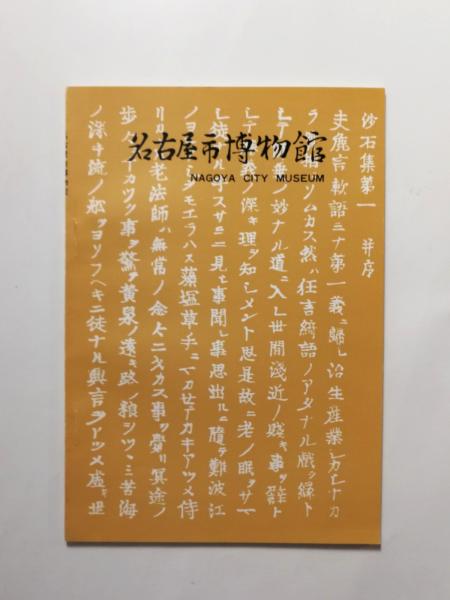 名古屋市博物館
NAGOYA CITY MUSEUM
沙石集第一 并序
夫麁言軟語ミナ第一義ニ歸シ治生産業シカシナカ
ラ 相ニソムカス然ハ狂言綺語ノアタナル戯ヲ縁ト
シテ 乗ノ妙ナル道ニ入レ世間淺近ノ賤キ事ヲ譬ト
シテ 義ノ深キ理ヲ知シメント思是故ニ老ノ眠ヲサマ
シ徒ナル スサミニ見シ事聞シ事思出ルニ隨テ難波江
ノヨシ シヲモエラハス藻塩草手ニマカセテカキアツメ侍
リカ 老法師ハ無常ノ念々ニヲカス事ヲ覺リ冥途ノ
歩々 チカツク事ヲ驚テ黄泉ノ遠キ路ノ粮ヲツヽミ苦海
ノ深キ流ノ船ヲヨソフヘキニ徒ナル興言ヲアツメ虚キ世